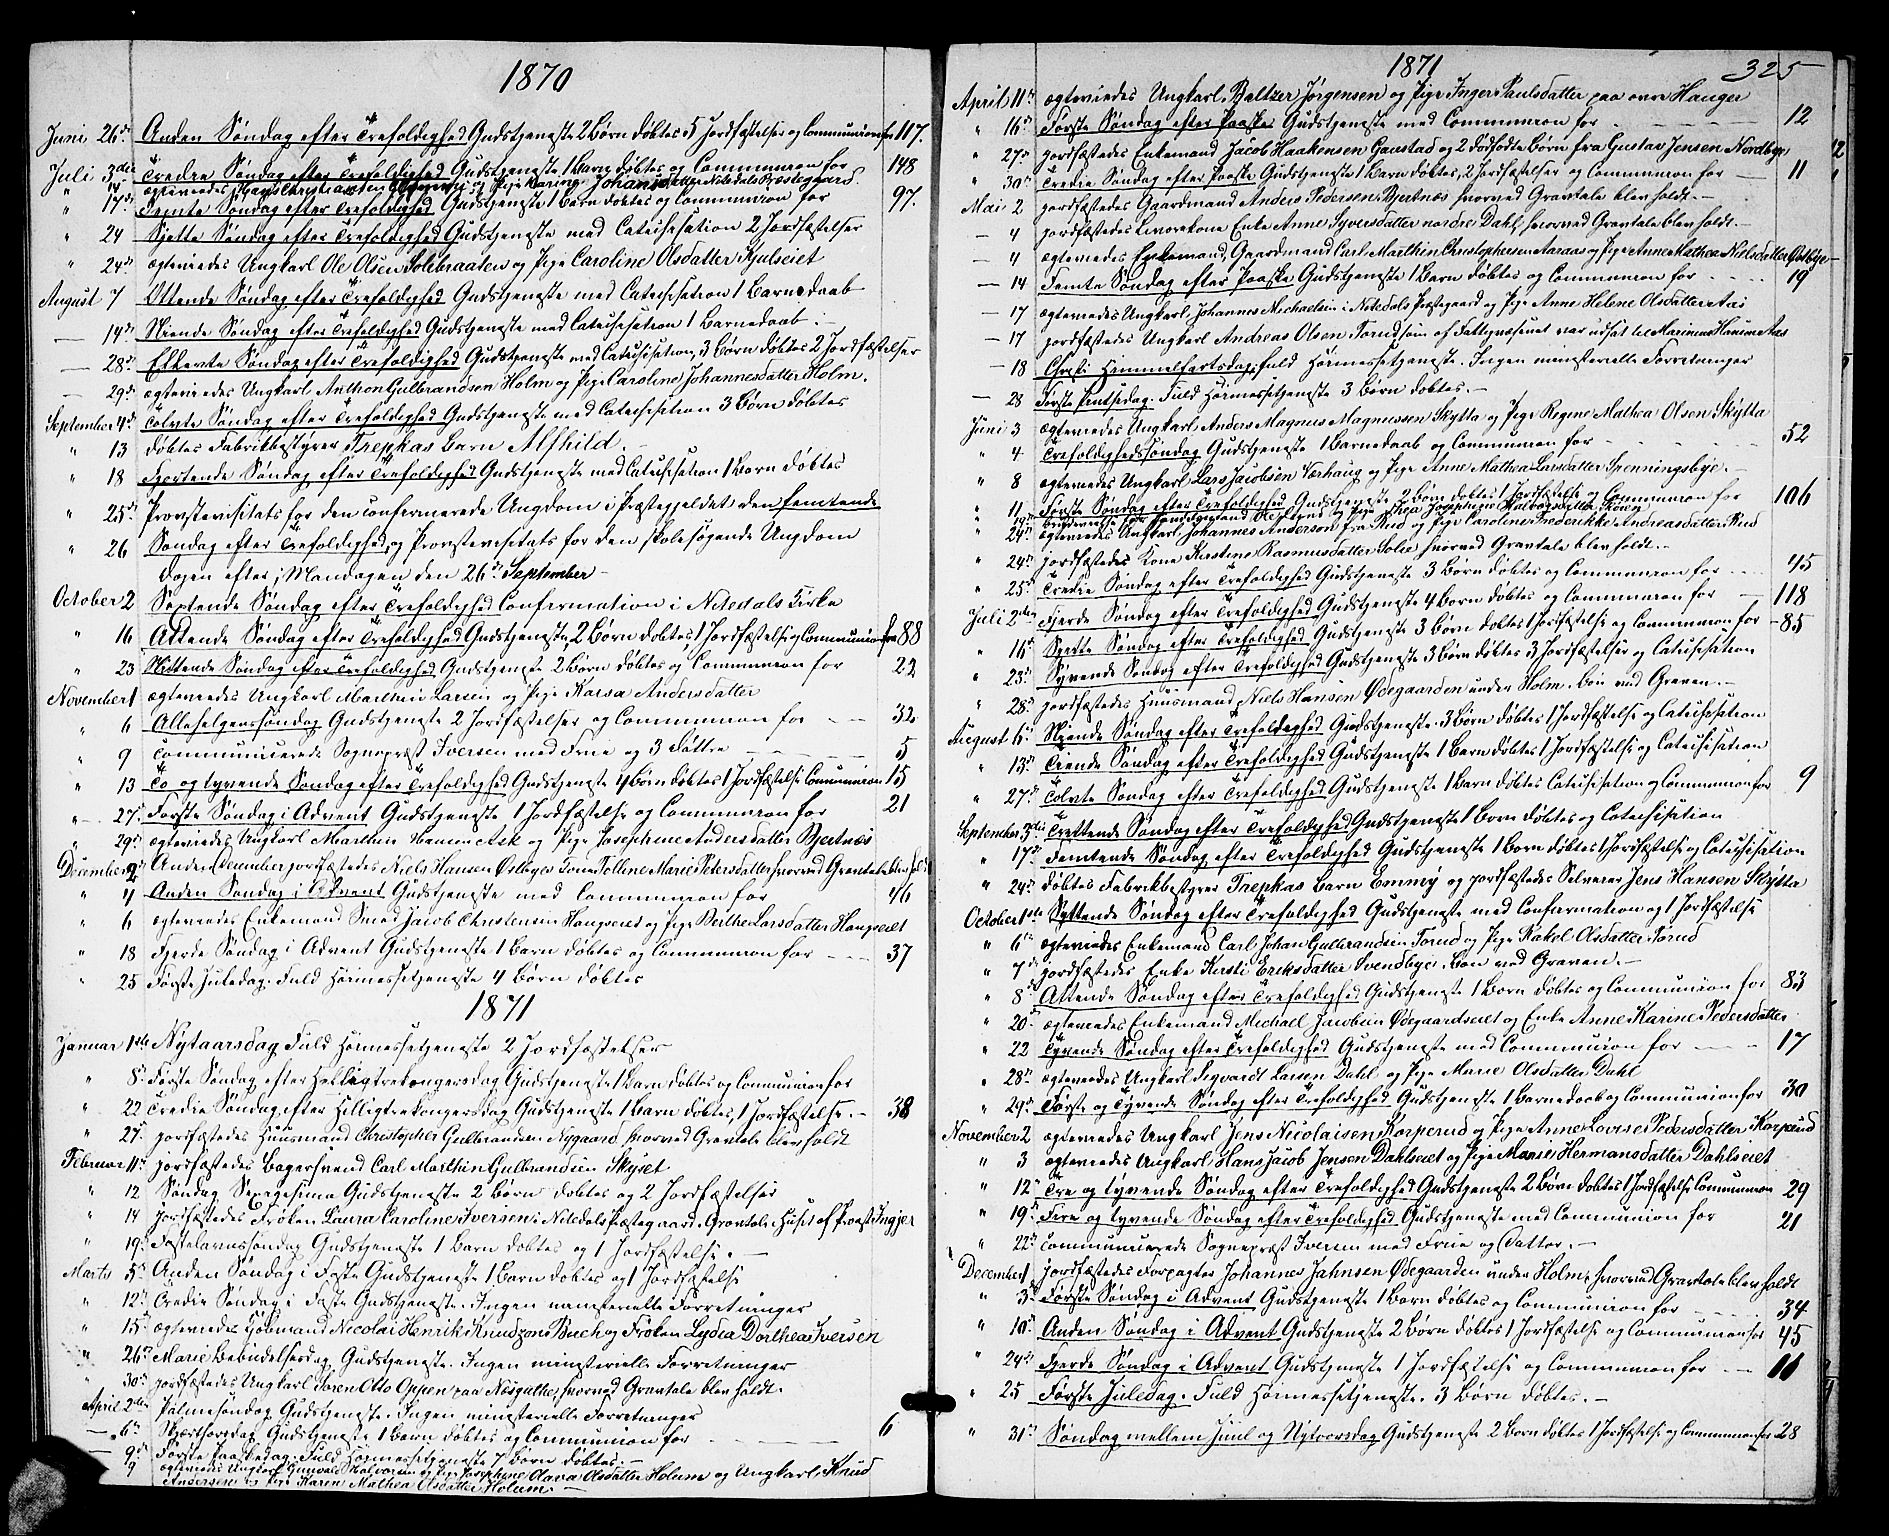 1870
Juni 26de Anden Søndag efter Trefoldighed Gudstjeneste, 2 Børn døbtes, 5 Jordfæstelser og Communion for 117.
Juli 3die Tredie Søndag efter Trefoldighed Gudstjeneste 1 Barn døbtes og Communion for 148
" 14 ægteviedes og Pige Karine Johansdatter Nitedals Præstegaard
" 17de Femte Søndag efter Trefoldighed Gudstjeneste 1 Barn døbtes og Communion for 97.
" 24 Sjette Søndag efter Trefoldighed Gudstjeneste med Catechisation 2 Jordfæstelser
" 24de ægteviedes Ungkarl Ole Olsen Solebraaten og Pige Caroline Olsdatter Kjulseiet
August 7 Ottende Søndag efter Trefoldighed Gudstjeneste med Catechisation 1 Barnedaab
— 14de Niende Søndag efter Trefoldighed Gudstjeneste med Catechisation 1 Barnedaab. —
— 28de Ellevte Søndag efter Trefoldighed Gudstjeneste med Catechisation, 3 Børn døbtes 2 Jordfæstelser
— 29de ægteviedes Ungkarl Anthon Gulbrandsen Holm og Pige Caroline Johannesdatter Holm.
September 4de Tolvte Søndag efter Trefoldighed Gudstjeneste med Catechisation 3 Børn døbtes
" 13 døbtes Fabrikbestyrer Trepkas Barn Alfhild. —
" 18 Fjortende Søndag efter Trefoldighed Gudstjeneste med Catechisation 1 Barn døbtes
" 25de Provstevisitats for den confirmerede Ungdom i Præstegjeldet den femtende
" 26 Søndag efter Trefoldighed, og Provstevisitats for den skolesøgende Ungdom
Dagen efter, Mandagen den 26de September —
October 2 Sextende Søndag efter Trefoldighed Confirmation i Nitedals Kirke
" 16 Attende Søndag efter Trefoldighed Gudstjeneste, 2 Børn døbtes, 1 Jordfæstelse og Communion for 88
" 23 Nittende Søndag efter Trefoldighed Gudstjeneste 2 Børn døbtes og Communion for 22
November 1 ægteviedes Ungkarl Marthin Larsen og Pige Karsa Andersdatter
" 6 Allehelgenssøndag Gudstjeneste 2 Jordfæstelser og Communion for — — 32
" 9 Communicerede Sognepræst Iversen med Frue og 3 Døttre — — — 5
" 13 To og tyvende Søndag efter Trefoldighed Gudstjeneste 4 Børn døbtes 1 Jordfæstelse Communion 15
" 27. Første Søndag i Advent Gudstjeneste 1 Jordfæstelse og Communion for 21
" 29de ægteviedes Ungkarl Marthin Hansen Ask og Pige Josephine Andersdatter Bjertnæs
December 2 Anden December jordfæstedes Niels Hansen Østbyes Kone Olline Marie Pedersdatter, hvorved Gravtale blev holdt
" 4 Anden Søndag i Advent Gudstjeneste med Communion for 46
" 6 ægteviedes Enkemand Smed Jacob Christensen Haugseiet og Pige Berthe Larsdatter Haugseiet
" 18 Fjerde Søndag i Advent Gudstjeneste 1 Barn døbtes og Communion for — — — 37
" 25 Første Juledag. Fuld Høimessetjeneste 4 Børn døbtes
1871
Januar 1ste Nytaarsdag Fuld Høimessetjeneste 2 Jordfæstelser
" 8de Første Søndag efter Helligtrekongersdag Gudstjeneste 1 Barn døbtes og Communion for
" 22 Tredie Søndag efter Helligtrekongersdag Gudstjeneste 1 Barn døbtes, 1 Jordfæstelse. — 38
" 27. jordfæstedes Huusmand Christopher Gulbrandsen Nygaard, hvorved Gravtale blev holdt
Februar 11te jordfæstedes Bagersvend Carl Marthin Gulbrandsen Skyset
" 12 Søndag Sexagesima Gudstjeneste 2 Børn døbtes og 2 Jordfæstelser
" 14 jordfæstedes Frøken Laura Caroline Iversen, Nitedals Præstegaard. Gravtale i Huset af Provst Ingier
" 19de Fastelavnssøndag Gudstjeneste 1 Barn døbtes og 1 Jordfæstelse. —
Marts 5te Anden Søndag i Faste Gudstjeneste 1 Barn døbtes og 1 Jordfæstelse
" 12te Tredie Søndag i Faste Gudstjeneste. Ingen ministerielle Forretninger
" 15de ægteviedes Kjøbmand Nicolai Henrik Knudzone Buch og Frøken Lydia Dorthea Iversen
" 26de Mariæ Bebudelsesdag. Gudstjeneste. Ingen ministerielle Forretninger
" 30te jordfæstedes Ungkarl Søren Otto Oppen paa Næsgutte, hvorved Gravtale blev holdt.
April 2den Palmesøndag Gudstjeneste. Ingen ministerielle Forretninger
— 6te Skjærthorsdag Gudstjeneste 1 Barn døbtes og Communion for — — — 6
— 9de Første Paaskedag. Fuld Høimessetjeneste 7 Børn døbtes. —
" 9 ægteviedes Ungkarl Halvorsen og Pige Josephine Olava Olsdatter Holum og Ungkarl Knud
Andersen og Pige Karen Mathea Olsdatter Holum. —
1871 325
April 11te ægteviedes Ungkarl Baltzer Jørgensen og Pige Inger Paulsdatter paa øvre Hauger
" 16de Første Søndag efter Paaske Gudstjeneste med Communion for — — — 12
" 27de jordfæstedes Enkemand Jacob Haakensen Gaustad og 2 dødfødte Børn fra Gustav Jensen Nordbye
" 30te Tredie Søndag efter Paaske Gudstjeneste 1 Barn døbtes, 2 Jordfæstelser og Communion for — 11
Mai 2 jordfæstedes Gaardmand Anders Pedersen Bjertnæs hvorved Gravtale blev holdt. —
— 4 jordfæstedes Livørekone Enke Anne Syversdatter nordre Dahl, hvorved Gravtale blev holdt. —
— 4 ægteviedes Enkemand, Gaardmand Carl Marthin Christophersen Aaraas og Pige Anne Mathea Nielsdatter Østbye —
— 14 Femte Søndag efter Paaske Gudstjeneste 1 Barn døbtes og Communion for — — 19
— 17 ægteviedes Ungkarl Johannes Michaelsen i Nitedals Præstegaard og Pige Anne Helene Olsdatter Aas
— 17 jordfæstedes Ungkarl Andreas Olsen Torud, som af Fattigvæsenet var udsat til
— 18 Christi Himmelfartsdag, fuld Høimessetjeneste. Ingen ministerielle Forretninger
— 28 Første Pintsedag. Fuld Høimessetjeneste 3 Børn døbtes. —
Juni 3 ægteviedes Ungkarl Anders Magnus Magnussen Skytta og Pige Regine Mathea Olsen Skytta
" 4 Trefoldighedssøndag Gudstjeneste 1 Barnedaab og Communion for — — — 52
" 8 ægteviedes Ungkarl Lars Jacobsen Værhaug og Pige Anne Mathea Larsdatter Spenningsbye. —
" 11 Første Søndag efter Trefoldighed Gudstjeneste 2 Børn døbtes 1 Jordfæstelse og Communion for 106
" 24de ægteviedes Ungkarl Johannes Andersen fra Rud og Pige Caroline Frederikke Andreasdatter Rud
" 24de jordfæstedes Kone Kirstine Rasmusdatter Solie hvorved Gravtale blev holdt. —
" 25de Tredie Søndag efter Trefoldighed Gudstjeneste 3 Børn døbtes og Communion for — — 45
Juli 2den Fjerde Søndag efter Trefoldighed Gudstjeneste 4 Børn døbtes og Communion for — 118
" 16de Sjette Søndag efter Trefoldighed Gudstjeneste 3 Børn døbtes 1 Jordfæstelse og Communion for — 85
" 23de Syvende Søndag efter Trefoldighed Gudstjeneste 3 Børn døbtes 3 Jordfæstelser og Catechisation
" 28de jordfæstedes Huusmand Niels Hansen Ødegaarden under Holm. Bøn ved Graven. —
August 6te Niende Søndag efter Trefoldighed Gudstjeneste. 3 Børn døbtes 1 Jordfæstelse og Catechisation
" 13de Tiende Søndag efter Trefoldighed Gudstjeneste 1 Barn døbtes 1 Jordfæstelse og Catechisation
" 27de Tolvte Søndag efter Trefoldighed Gudstjeneste 1 Barn døbtes Catechisation og Communion for 9
September 3die Trettende Søndag efter Trefoldighed Gudstjeneste 1 Barn døbtes og Catechisation
" 17de Femtende Søndag efter Trefoldighed Gudstjeneste 1 Barn døbtes 1 Jordfæstelse og Catechisation
" 24de døbtes Fabrikbestyrer Trepkas Barn Emmy og jordfæstedes Selveier Jens Hansen Skytta
October 1ste Syttende Søndag efter Trefoldighed Gudstjeneste med Confirmation og 1 Jordfæstelse
" 6te ægteviedes Enkemand Carl Johan Gulbrandsen Torud og Pige Rakel Olsdatter Torud
" 7de jordfæstedes Enke Kirsti Eriksdatter Svendbye. Bøn ved Graven. —
" 8de Attende Søndag efter Trefoldighed Gudstjeneste 1 Barn døbtes og Communion for 83
" 20de ægteviedes Enkemand Michael Jacobsen Ødegaardseiet og Enke Anne Karine Pedersdatter
" 22 Tyvende Søndag efter Trefoldighed Gudstjeneste med Communion for — — — 17
" 28de ægteviedes Ungkarl Sigvardt Larsen Dahl og Pige Marie Olsdatter Dahl
" 29de Første og Tyvende Søndag efter Trefoldighed Gudstjeneste 1 Barnedaab og Communion for 30
November 2 ægteviedes Ungkarl Jens Nicolaisen Korperud og Pige Anne Lovise Pedersdatter Korperud
" 3 ægteviedes Ungkarl Hans Jacob Jensen Dahlseiet og Pige Marie Hermansdatter Dahlseiet
" 12te Tre og tyvende Søndag efter Trefoldighed Gudstjeneste 2 Børn døbtes 1 Jordfæstelse Communion 29
" 19de Fire og tyvende Søndag efter Trefoldighed Gudstjeneste med Communion for 21
" 22de Communicerede Sognepræst Iversen med Frue og Datter. —
December 1 jordfæstedes Forpagter Johannes Jahnsen Ødegaarden under Holm, hvorved Gravtale blev holdt
" 3die Første Søndag i Advent Gudstjeneste 1 Barn døbtes og Communion for — — — 34
" 10de Anden Søndag i Advent Gudstjeneste 2 Børn døbtes 1 Jordfæstelse og Communion for 45
" 24de Fjerde Søndag i Advent Gudstjeneste 1 Jordfæstelse og Communion for — — 11
" 25 Første Juledag. Fuld Høimessetjeneste. 3 Børn døbtes. —
" 31te Søndag mellem Juul og Nytaarsdag Gudstjeneste 2 Børn døbtes 1 Jordfæstelse og Communion for 28